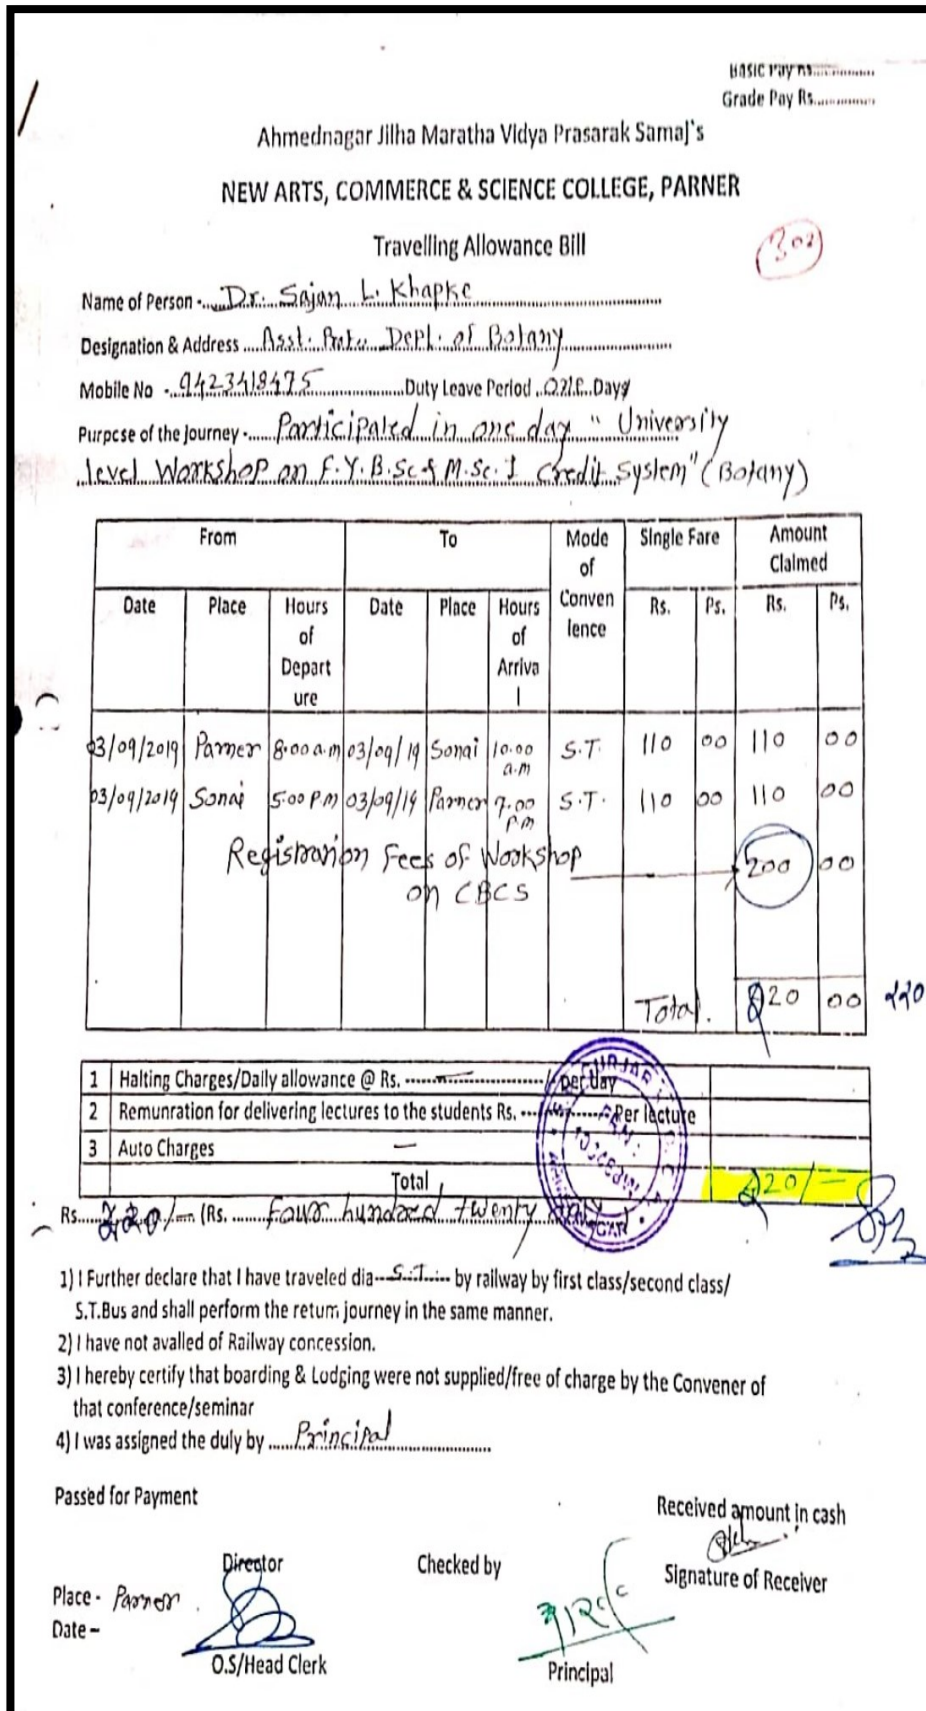 Basic Pay Rs.............
Grade Pay Rs.............
Ahmednagar Jilha Maratha Vidya Prasarak Samaj's
NEW ARTS, COMMERCE & SCIENCE COLLEGE, PARNER
Travelling Allowance Bill
302
Name of Person -.....Dr. Sajan L. Khapke
Designation & Address ....Asst. Dept. of Botany
Mobile No -.9423418475 Duty Leave Period ..one..Days
Purpose of the Journey -.....Participated in one day " University
level Workshop on F.Y.B.Sc & M.Sc. I Credit System" (Botany)
From To Mode of Convenience Single Fare Amount Claimed
Date Place Hours of Departure Date Place Hours of Arrival Rs. Ps. Rs. Ps.
03/09/2019 Parner 8.00 a.m 03/09/19 Sonai 10.00 a.m S.T. 110 00 110 00
03/09/2019 Sonai 5.00 PM 03/09/19 Parner 7.00 PM S.T. 110 00 110 00
Registration Fees of Workshop 200 00
on CBCS
Total. 220 00 220
1 Halting Charges/Daily allowance @ Rs. ---------- / per day
2 Remunration for delivering lectures to the students Rs. ---------- Per lecture
3 Auto Charges —
Total 220/-
Rs.....220/- (Rs. ...... Four hundred twenty only
1) I Further declare that I have traveled dia---S.T.--- by railway by first class/second class/
S.T.Bus and shall perform the return journey in the same manner.
2) I have not availed of Railway concession.
3) I hereby certify that boarding & Lodging were not supplied/free of charge by the Convener of
that conference/seminar
4) I was assigned the duly by .....Principal
Passed for Payment
Received amount in cash
Director
Checked by
Signature of Receiver
Place - Parner.
Date –
O.S/Head Clerk
Principal